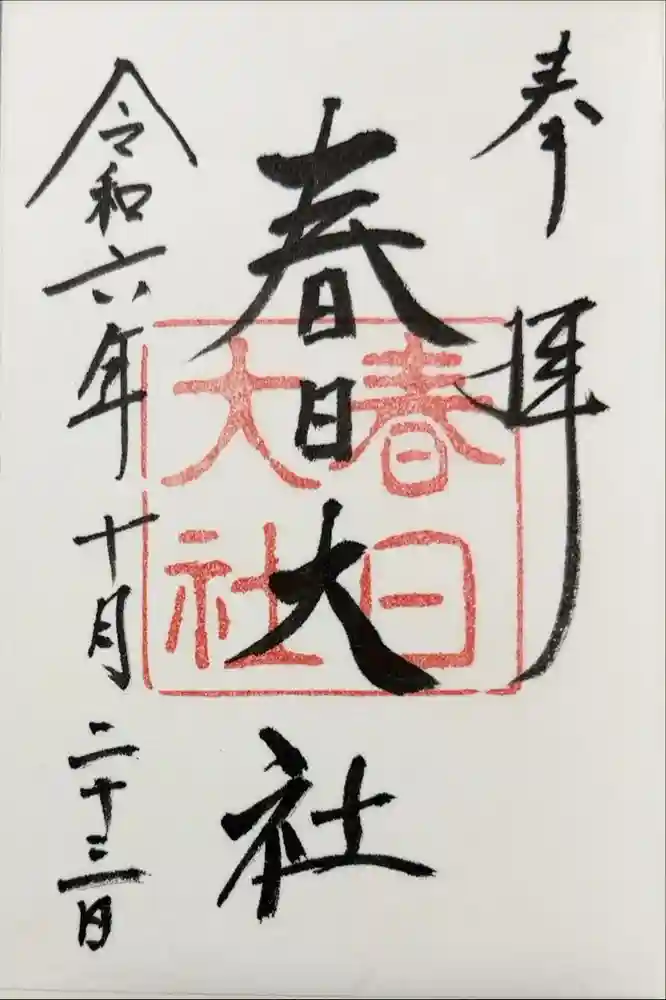 奉拝
春日大社
春日大社
令和六年十月二十三日